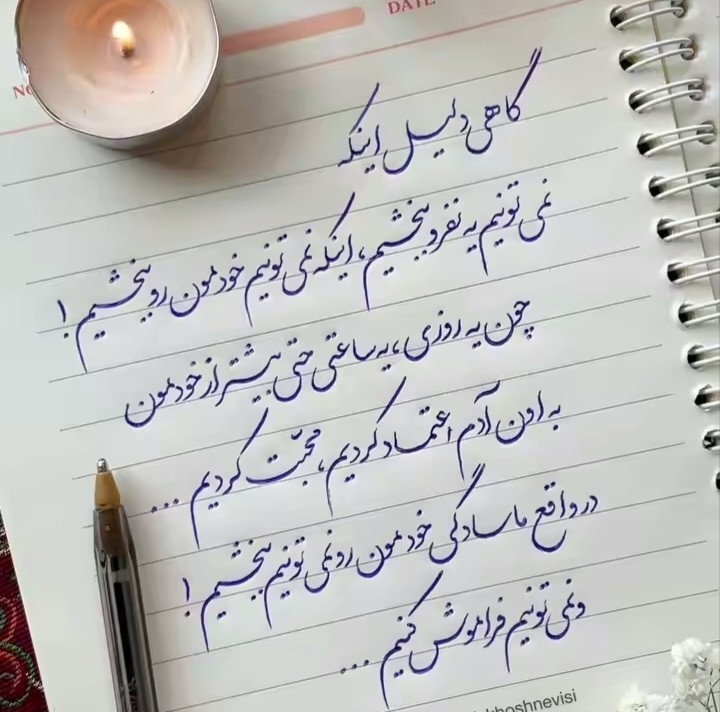 DATE
گاهی دلیل اینکه
نمی تونیم یه نفرو ببخشیم، اینکه نمی تونیم خودمون رو ببخشیم!
چون یه روزی، یه ساعتی حتی بیشتر از خودمون
به اون آدم اعتماد کردیم، محبّت کردیم ...
در واقع ما سادگی خودمون رو نمی تونیم ببخشیم!
و نمی تونیم فراموش کنیم ...
khoshnevisi